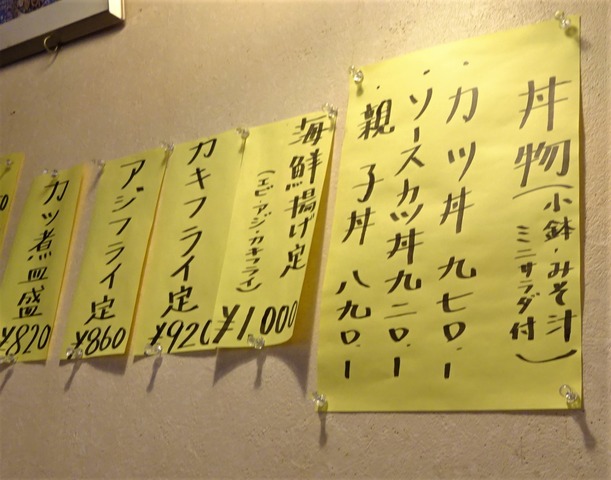 丼物(小鉢・みそ汁
ミニサラダ付)
・カツ丼 九七〇.ー
・ソースカツ丼 九二〇.ー
・親子丼 八九〇.ー
海鮮揚げ定
(エビ・アジ・カキフライ)
¥1,000
カキフライ定
¥920
アジフライ定
¥860
カツ煮皿盛
¥820